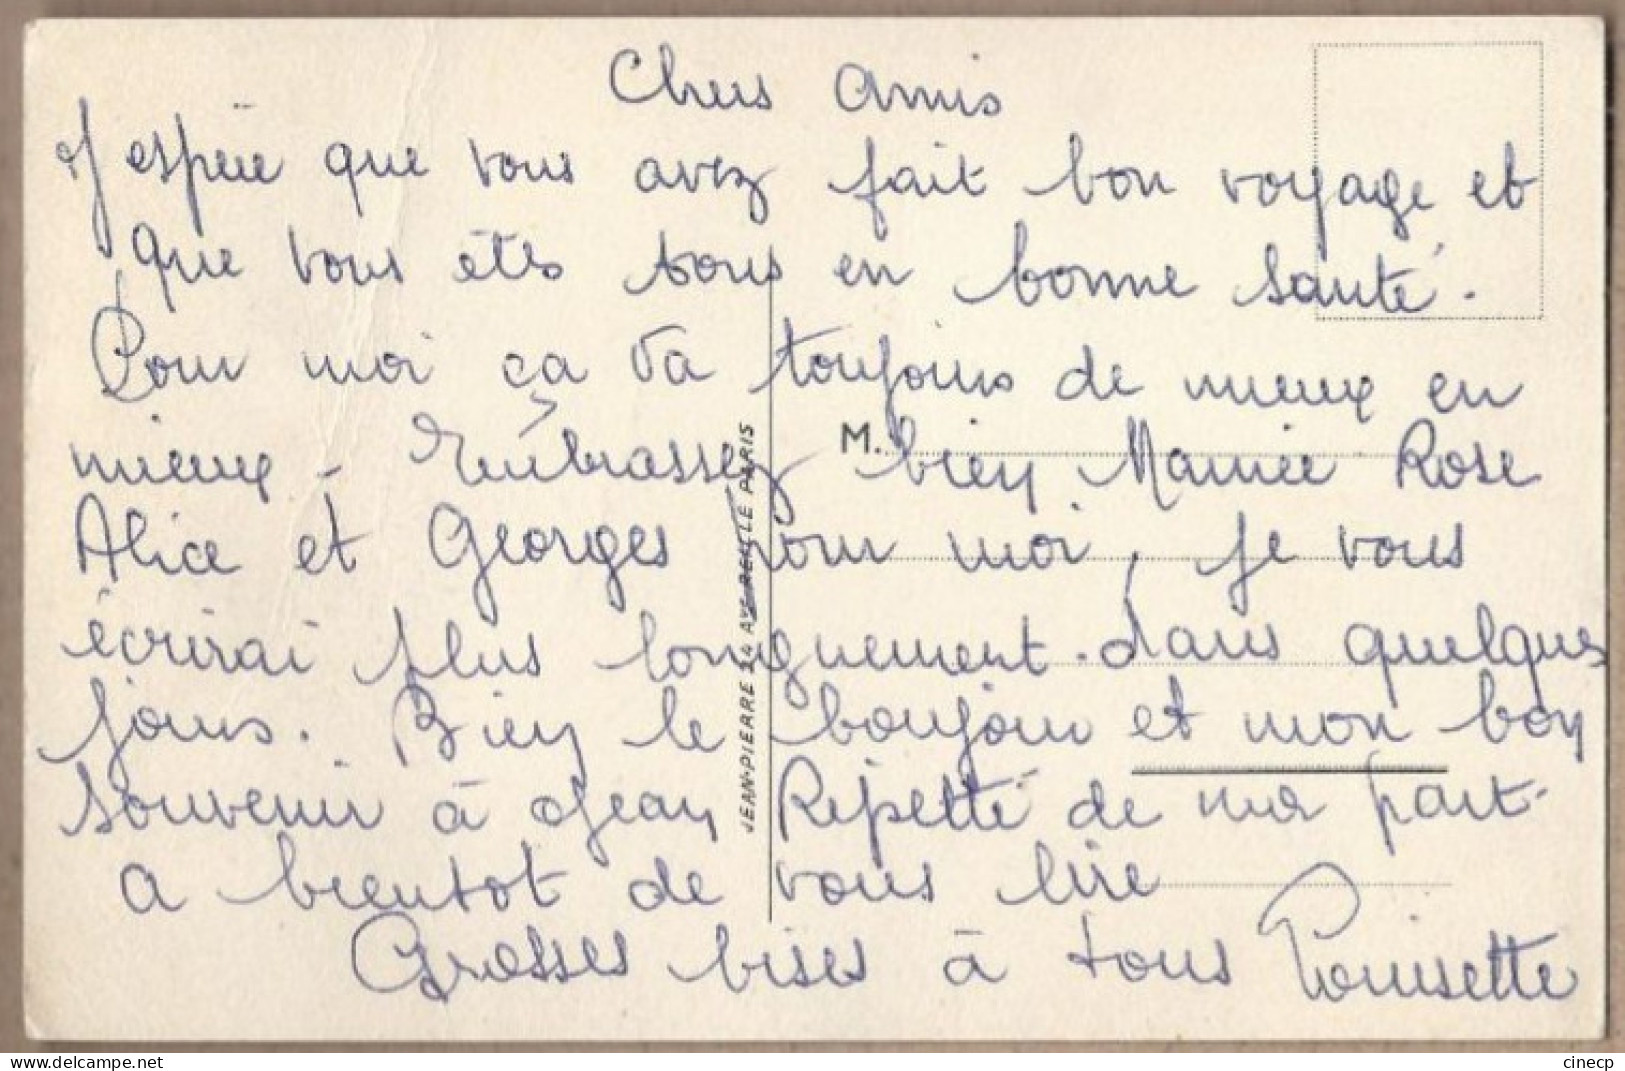 Chers amis
J espère que vous avez fait bon voyage et
que vous êtes tous en bonne santé.
Pour moi ça va toujours de mieux en
mieux - Embrassez bien Mamie Rose
Alice et Georges pour moi, Je vous
écrirai plus longuement dans quelques
jours. Bien le bonjour et mon bon
souvenir à Jean Ripetti de ma part.
a bientot de vous lire
Grosses bises à tous Louisette
M.
JEAN-PIERRE 24 AVE REILLE PARIS
cinecp